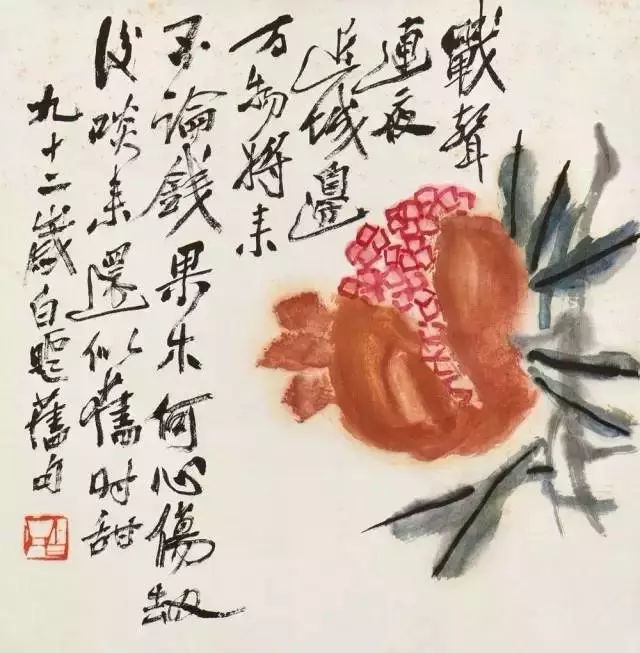 戰聲
連夜
近城邊
万物將来
不論錢果木何心傷劫
後啖来還似舊时甜
九十二歲白石舊句